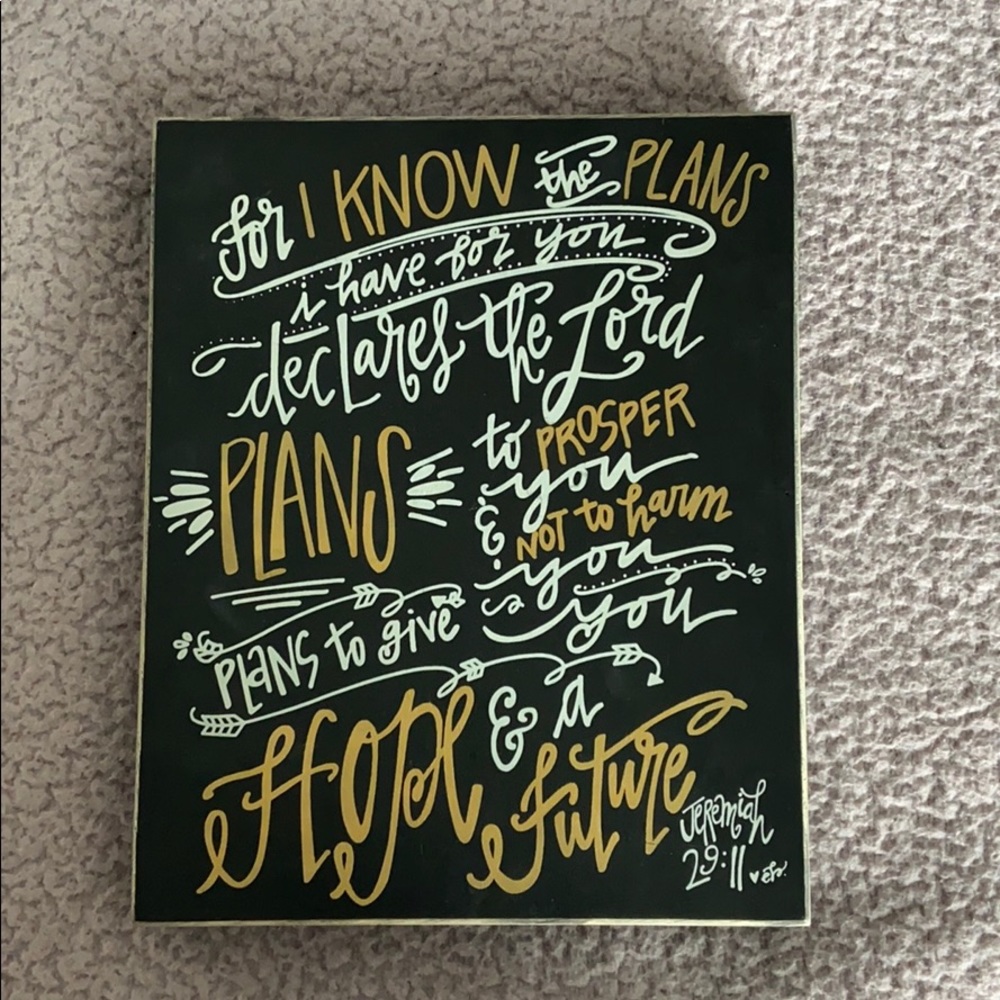 for I KNOW the PLANS
i have for you
declares the Lord
PLANS
to PROSPER
you
& NOT to harm
you
PLANS to give you
HOPE & a
future
Jeremiah
29:11